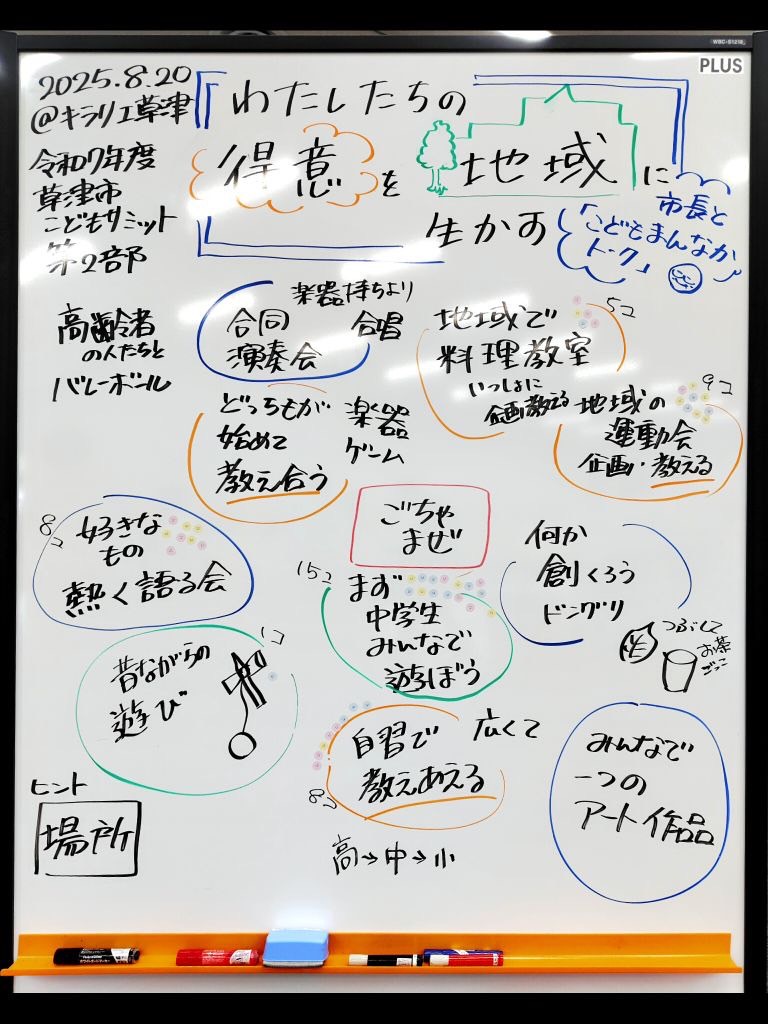 WBC-S1212
PLUS
2025.8.20
@キラリエ草津
令和7年度
草津市
こどもサミット
第2部
『わたしたちの
得意を地域に
生かす』
市長と
「こどもまんなか
トーク」
高齢者
の人たちと
バレーボール
楽器持ちより
合同
演奏会
合唱
地域で
料理教室
5コ
いっしょに
企画教える
9コ
地域の
運動会
企画・教える
どっちもが
始めて
教え合う
楽器
ゲーム
ごちゃ
まぜ
8コ
好きな
もの
熱く語る会
15コ
まず
中学生
みんなで
遊ぼう
何か
創くろう
ドングリ
つぶして
お茶
ごっこ
昔ながらの
遊び
1コ
自習で
教えあえる
広くて
8コ
高→中→小
みんなで
一つの
アート作品
ヒント
場所